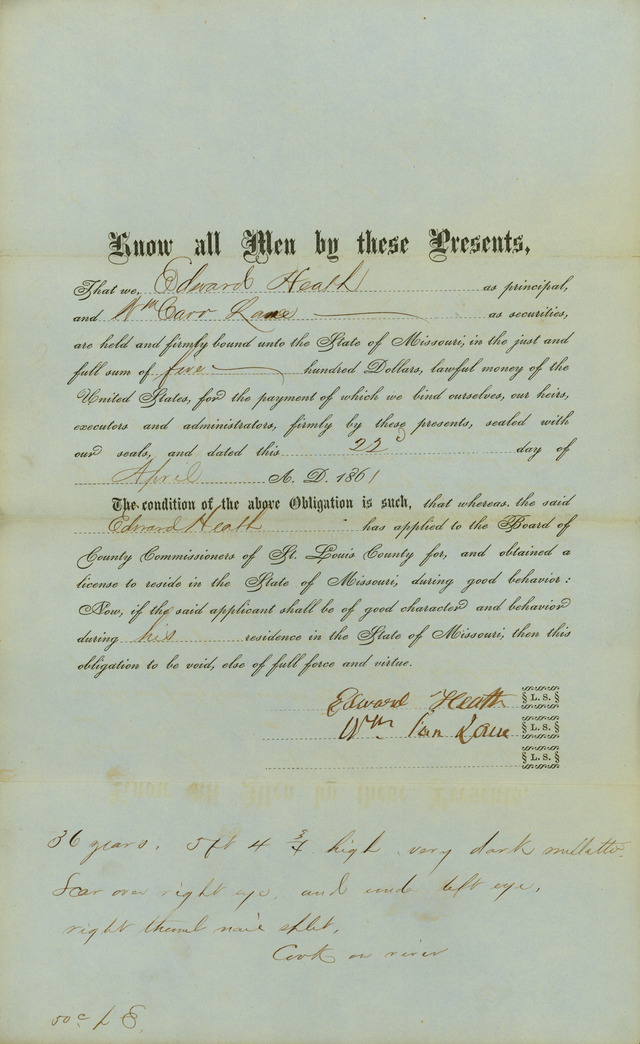 Know all Men by these Presents,
That we, Edward Heath as principal,
and Wm Carr Lane as securities,
are held and firmly bound unto the State of Missouri, in the just and
full sum of five hundred Dollars, lawful money of the
United States, for the payment of which we bind ourselves, our heirs,
executors and administrators, firmly by these presents, sealed with
our seals, and dated this 22d day of
April A. D. 1861
The condition of the above Obligation is such, that whereas, the said
Edward Heath has applied to the Board of
County Commissioners of St. Louis County for, and obtained a
license to reside in the State of Missouri, during good behavior:
Now, if the said applicant shall be of good character and behavior
during his residence in the State of Missouri, then this
obligation to be void, else of full force and virtue.
Edward Heath L. S.
Wm Carr Lane L. S.
L. S.
36 years. 5 ft 4 3/4 high very dark mulatto
Scar over right eye, and unde left eye,
right thumb nail split,
Cook on river
50c